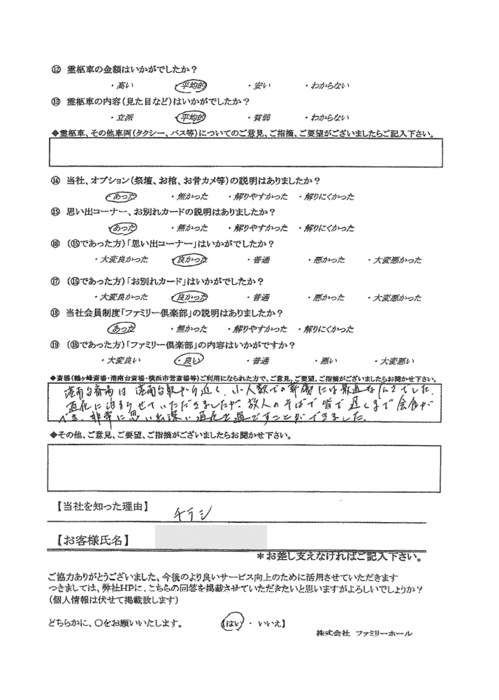 ⑫ 霊柩車の金額はいかがでしたか？
・高い ・平均的 ・安い ・わからない
⑬ 霊柩車の内容(見た目など)はいかがでしたか？
・立派 ・平均的 ・貧弱 ・わからない
◆霊柩車、その他車両(タクシー、バス等)についてのご意見、ご指摘、ご要望がございましたらご記入下さい。
⑭ 当社、オプション(祭壇、お棺、お骨カメ等)の説明はありましたか？
・あった ・無かった ・解りやすかった ・解りにくかった
⑮ 思い出コーナー、お別れカードの説明はありましたか？
・あった ・無かった ・解りやすかった ・解りにくかった
⑯ (⑮であった方)「思い出コーナー」はいかがでしたか？
・大変良かった ・良かった ・普通 ・悪かった ・大変悪かった
⑰ (⑮であった方)「お別れカード」はいかがでしたか？
・大変良かった ・良かった ・普通 ・悪かった ・大変悪かった
⑱ 当社会員制度「ファミリー倶楽部」の説明はありましたか？
・あった ・無かった ・解りやすかった ・解りにくかった
⑲ (⑱であった方)「ファミリー倶楽部」の内容はいかがですか？
・大変良い ・良い ・普通 ・悪い ・大変悪い
◆斎場(鶴ヶ峰斎場・港南台斎場・横浜市営斎場等)ご利用になられた方で、ご意見、ご要望、ご指摘がございましたらお聞かせ下さい。
港南台斎場は 港南台駅から近く、小人数での葬儀には最適な
通夜に泊まらせていただきましたが 故人のそばで皆で遅くまで会食が
でき、非常に思い出深い通夜を過ごすことができました。
◆その他、ご意見、ご要望、ご指摘がございましたらお聞かせ下さい。
【当社を知った理由】 チラシ
【お客様氏名】
＊お差し支えなければご記入下さい。
ご協力ありがとうございました、今後のより良いサービス向上のために活用させていただきます
つきましては、弊社HPに、こちらの回答を掲載させていただきたいと思いますがよろしいでしょうか？
(個人情報は伏せて掲載致します)
どちらかに、○をお願いいたします。 【はい ・ いいえ】
株式会社 ファミリーホール